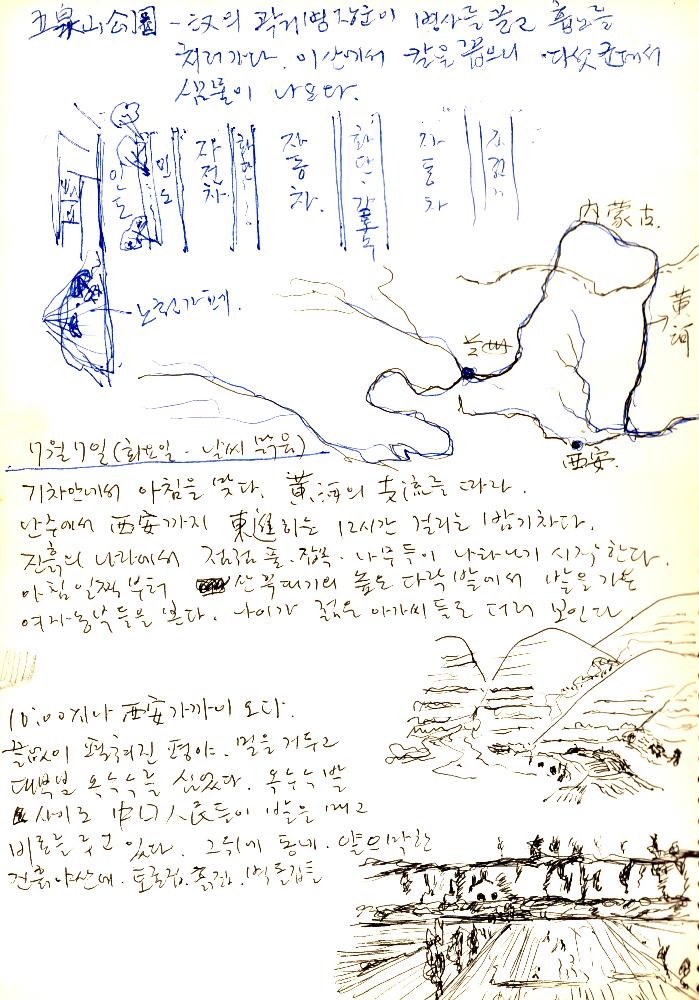 五泉山公園 - 의 곽거병 장군이 병사를 끌고 흉노를
치러가다. 이산에서 칼을 꼽으니 다섯군데서
샘물이 나오다.
인도
인도
자전차
화단
자동차
화단·
자동차
노천카페.
內蒙古.
黃河
兰州
西安.
7월 7일 (화요일 - 날씨 맑음)
기차안에서 아침을 맞다. 黃海의 支流를 따라.
난주에서 西安까지 東進하는 12시간 걸리는 밤기차다.
진흙의 나라에서 점점 풀·잡목·나무들이 나타나기 시작한다.
아침 일찍부터 산꼭대기의 높은 다락밭에서 밭을 가는
여자농부들을 본다. 나이가 젊은 아가씨들로 더러 보인다
10:00지나 西安가까이 오다.
끝없이 펼쳐진 평야. 밀을 거두고
대부분 옥수수를 심었다. 옥수수밭
사이로 中口人民들이 밭을 매고
비료를 주고 있다. 그뒤에 동네. 얕으막한
건흙야산에. 토굴집. 흙집. 벽돌집들